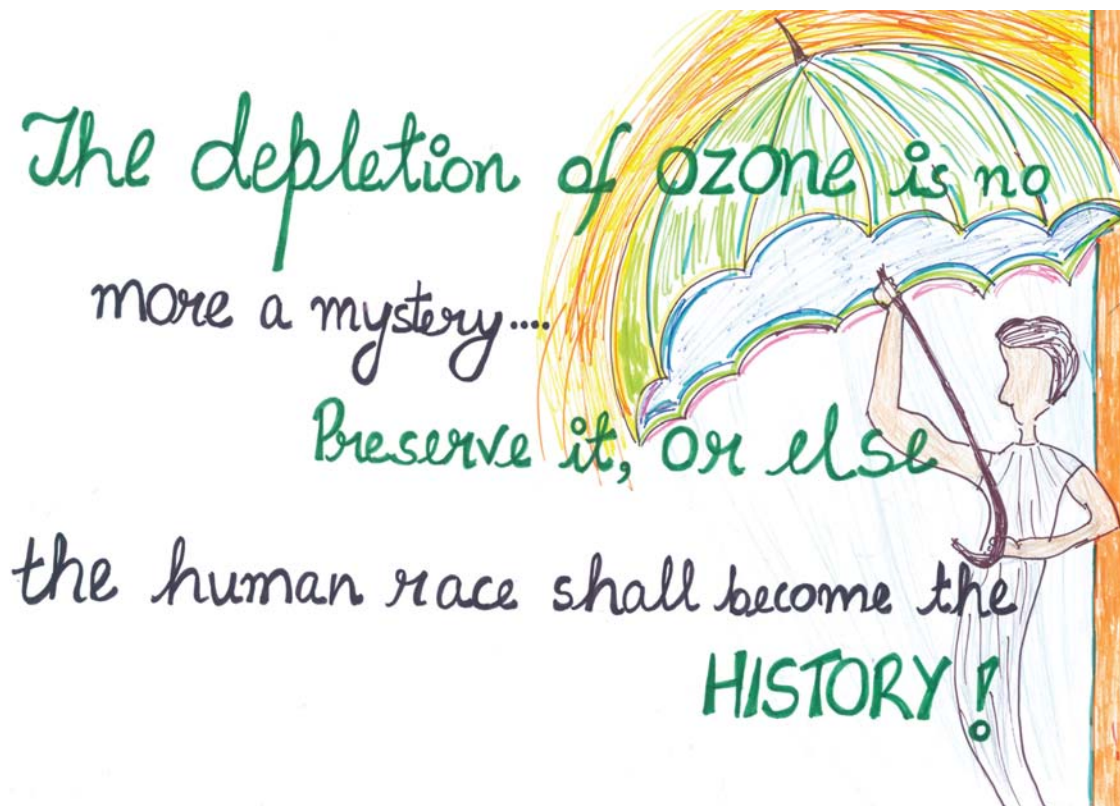 The depletion of OZONE is no
more a mystery....
Preserve it, or else
the human race shall become the
HISTORY!